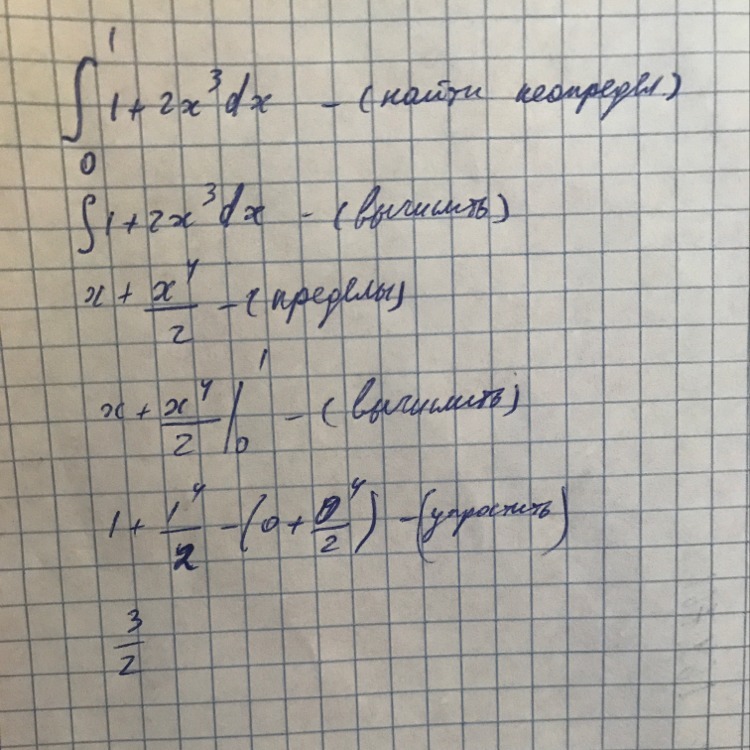 ∫₀¹ 1 + 2x³dx - (найти неопредел.)
∫ 1 + 2x³dx - (вычислить)
x + x⁴/2 - (пределы)
x + x⁴/2 |₀¹ - (вычислить)
1 + 1⁴/2 - (0 + 0⁴/2) - (упростить)
3/2